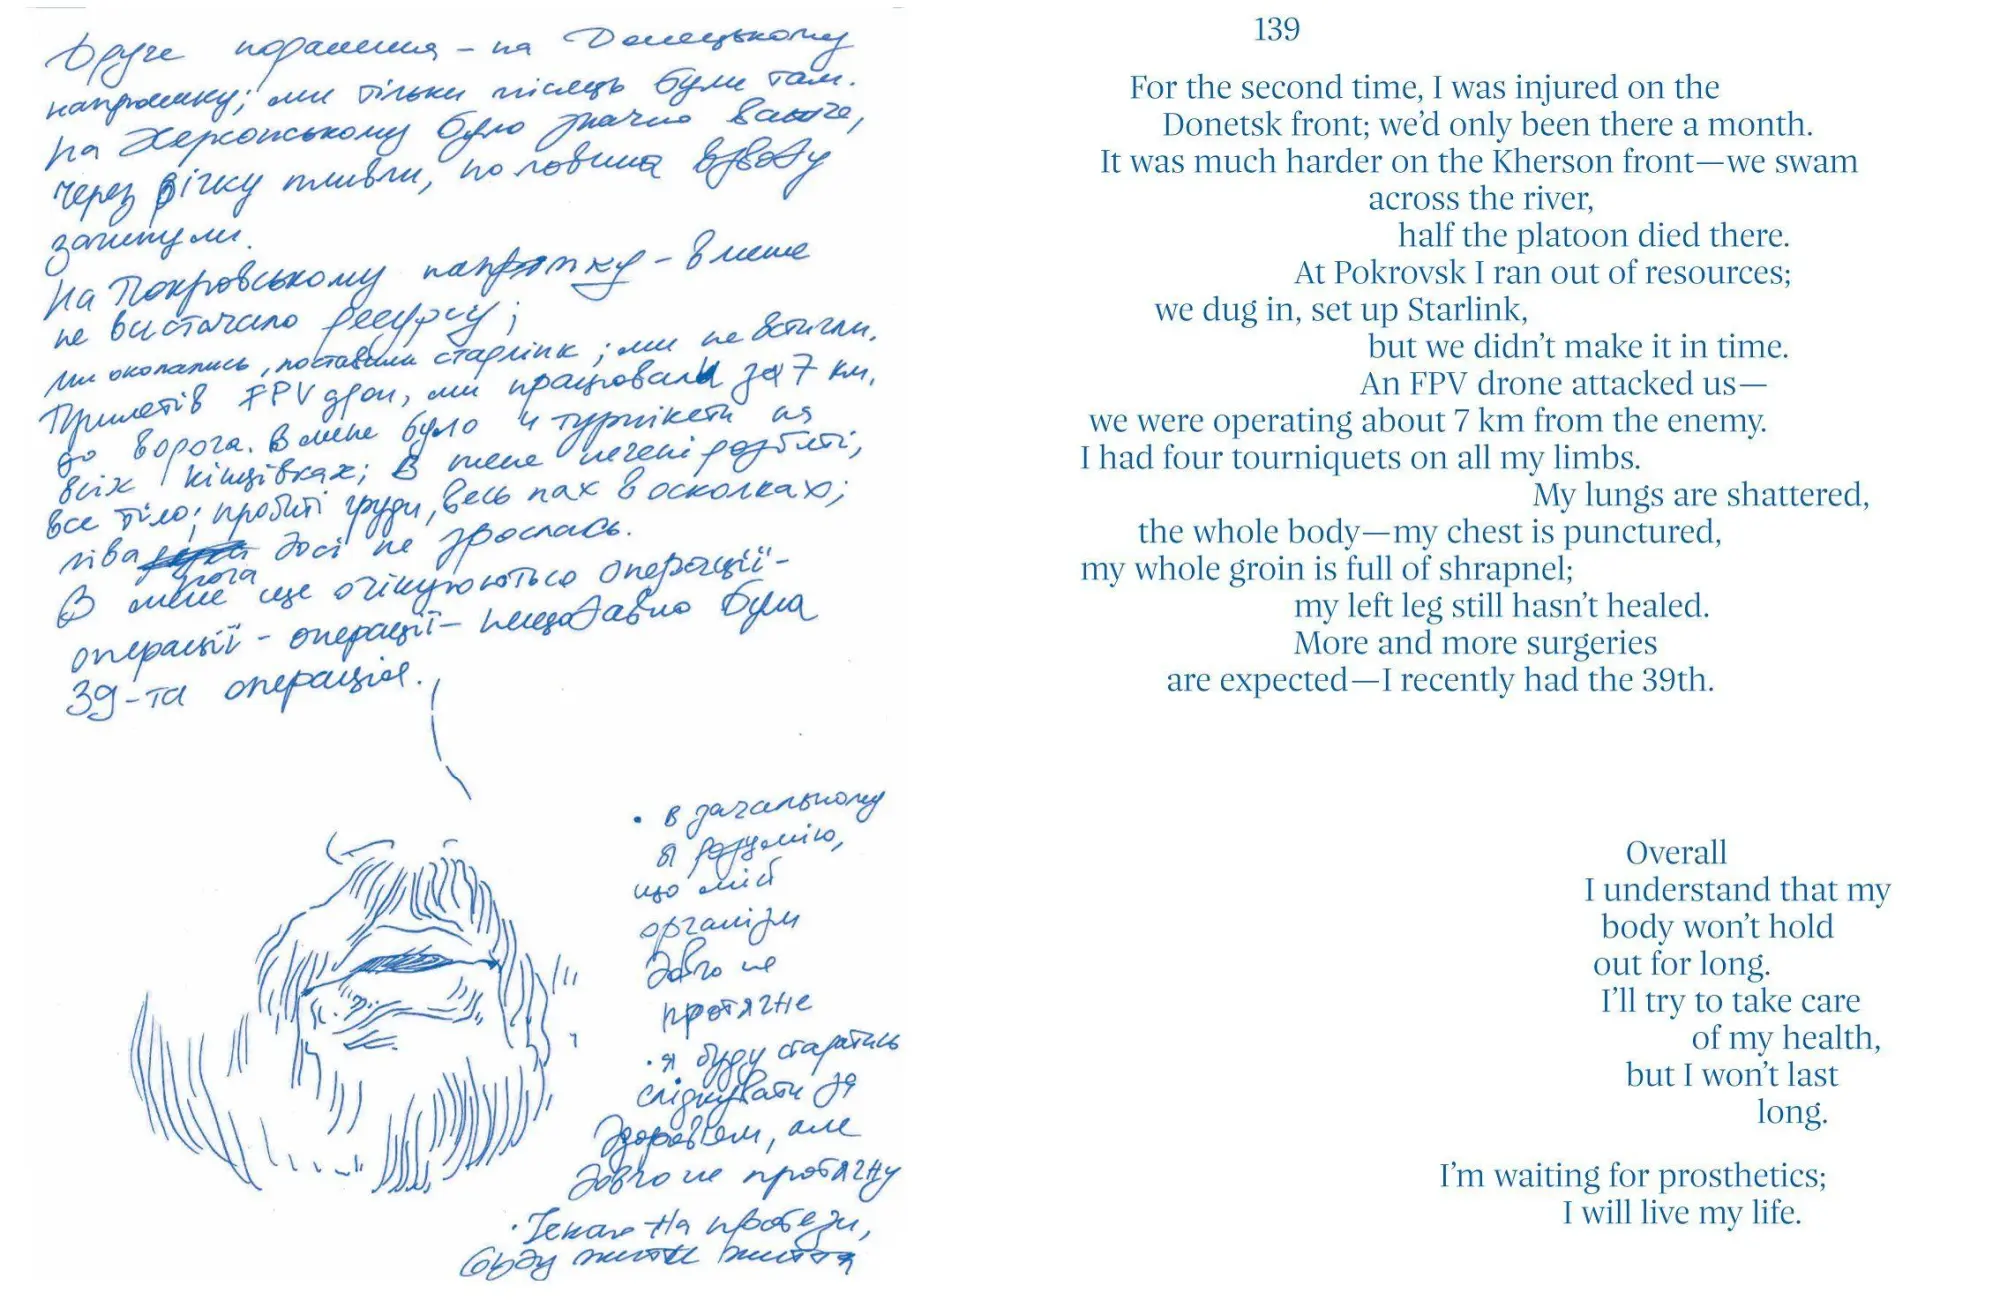 Друге поранення – на Донецькому
напрямку; ми тільки місяць були там.
На Херсонському було значно важче,
через річку пливли, половина взводу
загинули.
На Покровському напрямку – в мене
не вистачало ресурсу;
ми окопались, поставили старлінк; ми не встигли.
Прилетів FPV дрон, ми працювали за 7 км.
до ворога. В мене було 4 турнікети на
всіх кінцівках; В мене легені розбиті,
все тіло; пробиті груди, весь пах в осколках;
ліва нога досі не зрослась.
В мене ще очікуються операції –
операції – операції – нещодавно була
39-та операція.
• в загальному
я розумію,
що мій
організм
довго не
протягне
• я буду старатись
слідкувати за
здоров'ям, але
довго не протягну
• Чекаю на протези,
буду жити життя
139
For the second time, I was injured on the
Donetsk front; we'd only been there a month.
It was much harder on the Kherson front—we swam
across the river,
half the platoon died there.
At Pokrovsk I ran out of resources;
we dug in, set up Starlink,
but we didn't make it in time.
An FPV drone attacked us—
we were operating about 7 km from the enemy.
I had four tourniquets on all my limbs.
My lungs are shattered,
the whole body—my chest is punctured,
my whole groin is full of shrapnel;
my left leg still hasn't healed.
More and more surgeries
are expected—I recently had the 39th.
Overall
I understand that my
body won't hold
out for long.
I'll try to take care
of my health,
but I won't last
long.
I'm waiting for prosthetics;
I will live my life.